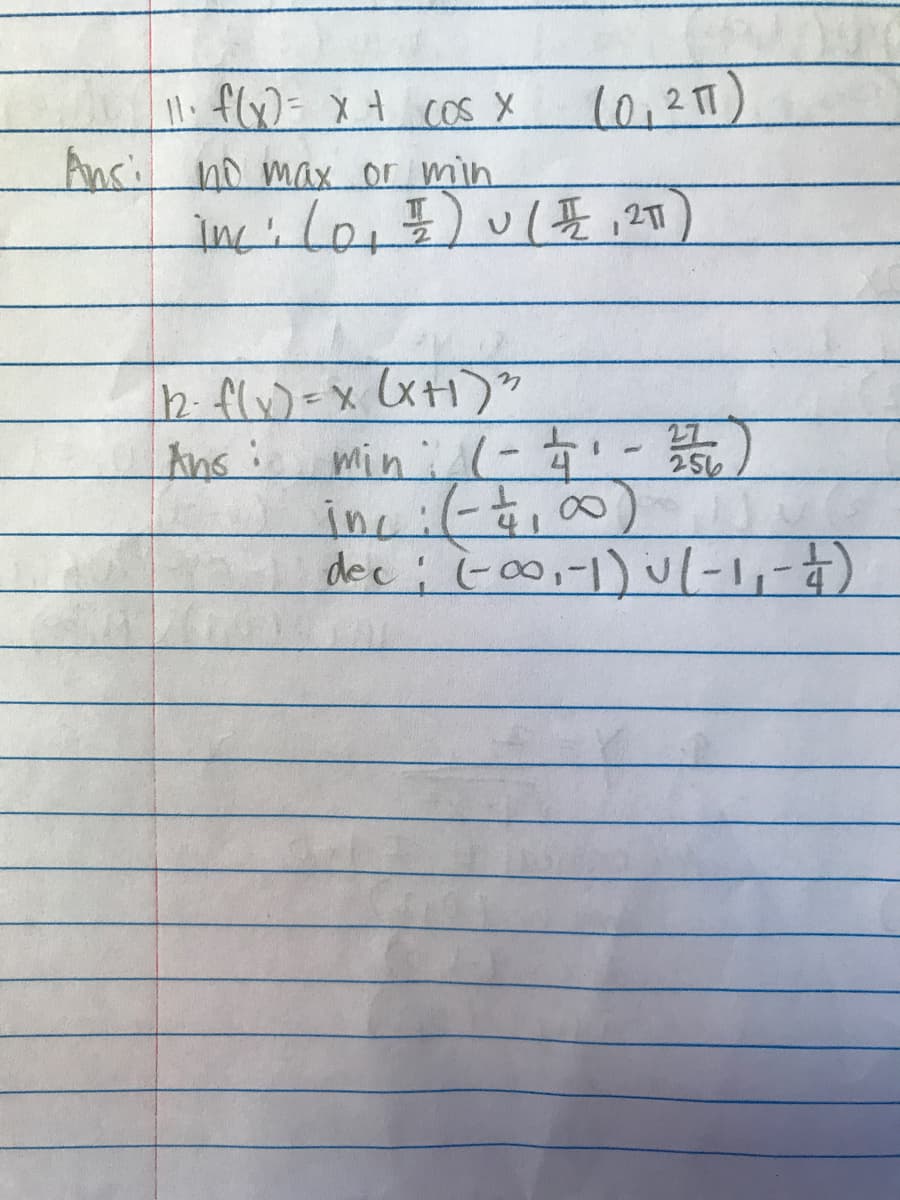 11. f(x) = x + cos x (0, 2π)
Ans: no max or min
inc: (0, π/2) ∪ (π/2, 2π)
12. f(x) = x (x+1)³
Ans: min: (-1/4, -27/256)
inc: (-1/4, ∞)
dec: (-∞, -1) ∪ (-1, -1/4)